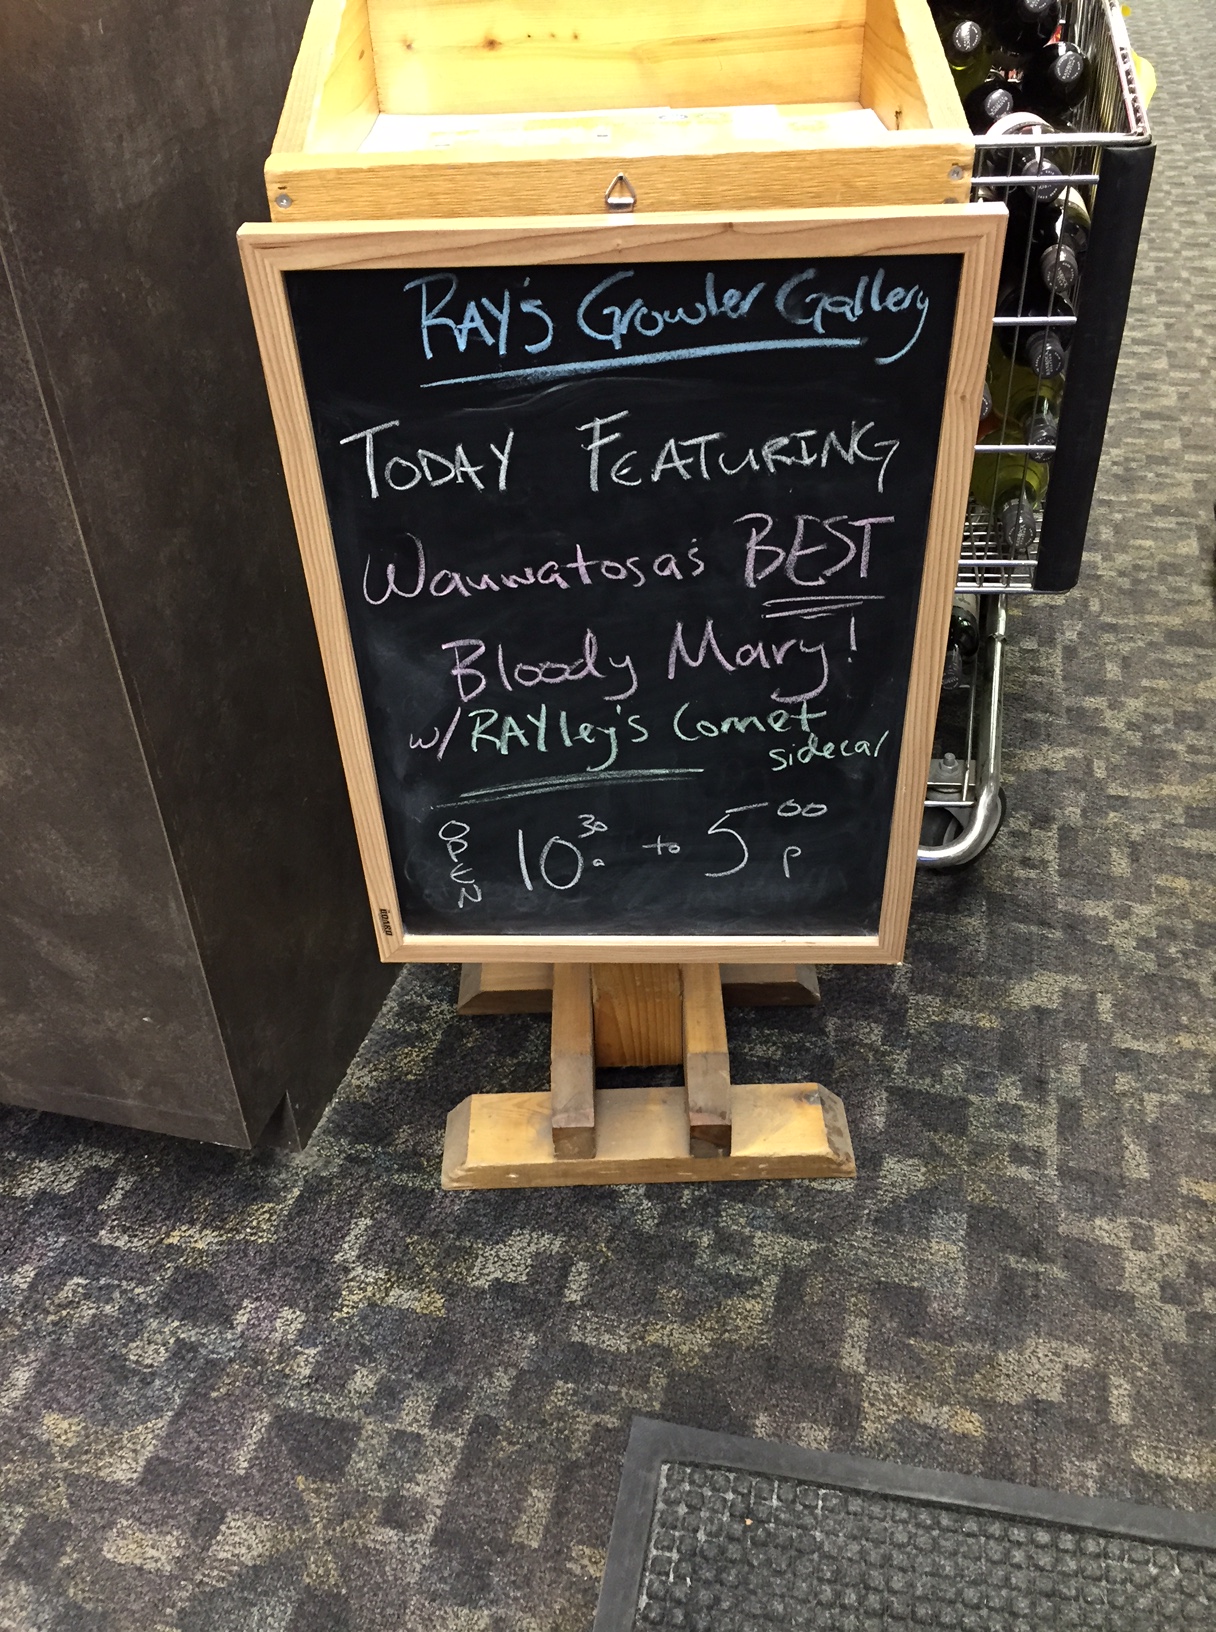 RAY's Growler Gallery
TODAY FEATURING
Wauwatosa's BEST
Bloody Mary!
w/ RAYley's Comet
sidecar
OPEN 10 30 a to 5 00 p
BOARD